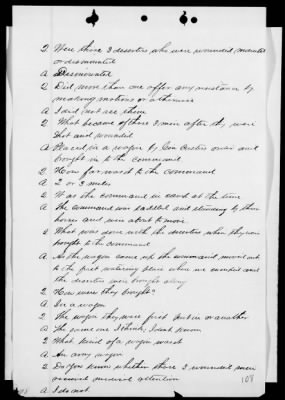 Q Were those 3 deserters who were wounded, mounted
or dismounted
A Dismounted
Q Did more than one offer any resistance by
making motions or otherwise
A I did not see them
Q What became of those 3 men after they were
shot and wounded
A Placed in a wagon by Gen Custers orders and
brought in to the command
Q How far was it to the command
A 2 or 3 miles
Q Was the command in camp at the time
A The command was saddled and standing by their
horses and were about to move
Q What was done with the deserters when they were
brought to the command
A As the wagon came up the command moved out
to the first watering place when we camped and
the deserters were brought along
Q How were they brought?
A In a wagon
Q The wagon they were first put in or another
A The same one I think, I dont know
Q What kind of a wagon was it
A An army wagon
Q Do you know whether those 3 wounded men
received medical attention
A I do not
108